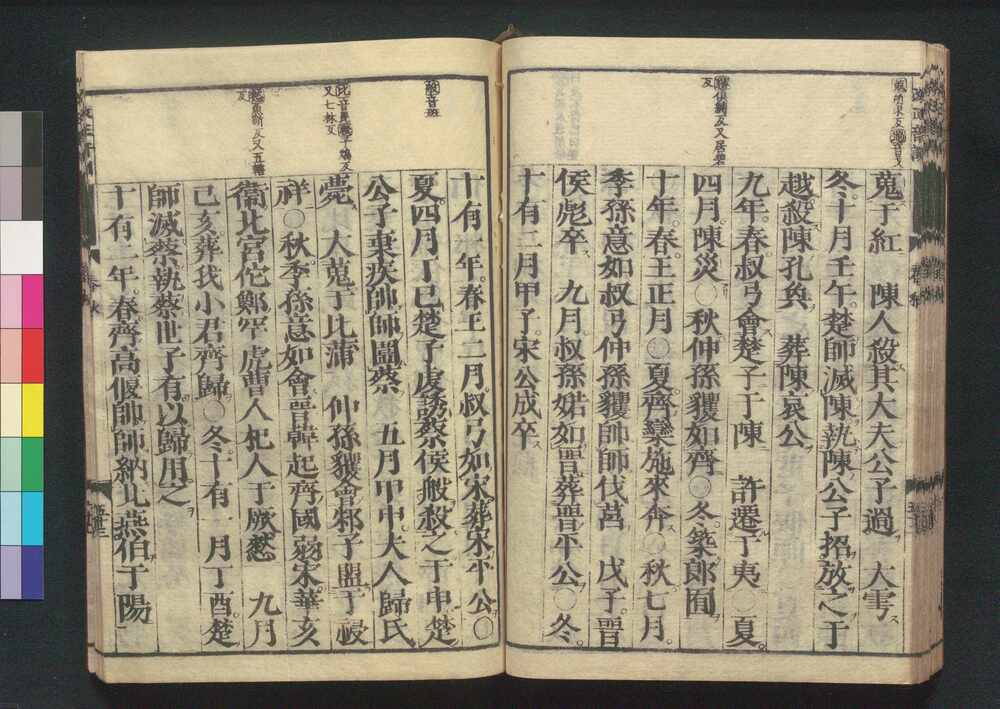 蒐所求反過音戈
貜俱縛反又居碧
反
蒐于紅　陳人殺其大夫公子過　大雩
冬。十月壬午。楚師滅陳。執陳公子招。放之于
越。殺陳孔奐　葬陳哀公
九年。春。叔弓會楚子于陳　許遷于夷○夏。
四月。陳災○秋。仲孫貜如齊○冬。築郎囿
十年。春。王正月○夏。齊欒施來奔○秋。七月。
季孫意如叔弓仲孫貜帥師伐莒　戊子。晋
侯彪卒　九月。叔孫婼如晋。葬晋平公○冬。
十有二月甲子。宋公成卒
般音班
比音毘祲子鴆反
又七林反
憖魚靳反又五轄
反
十有一年。春。王二月。叔弓如宋。葬宋平公○
夏。四月丁巳。楚子虔誘蔡侯般。殺之于申。楚
公子棄疾帥師圍蔡　五月甲申。夫人歸氏
薨　大蒐于比蒲　仲孫貜會邾子盟于祲
祥○秋。季孫意如會晋韓起齊國弱宋華亥
衞北宮佗鄭罕虎曹人杞人于厥憖　九月
己亥。葬我小君齊歸○冬。十有一月丁酉。楚
師滅蔡。執蔡世子有。以歸用之
十有二年。春。齊高偃帥師。納北燕伯于陽